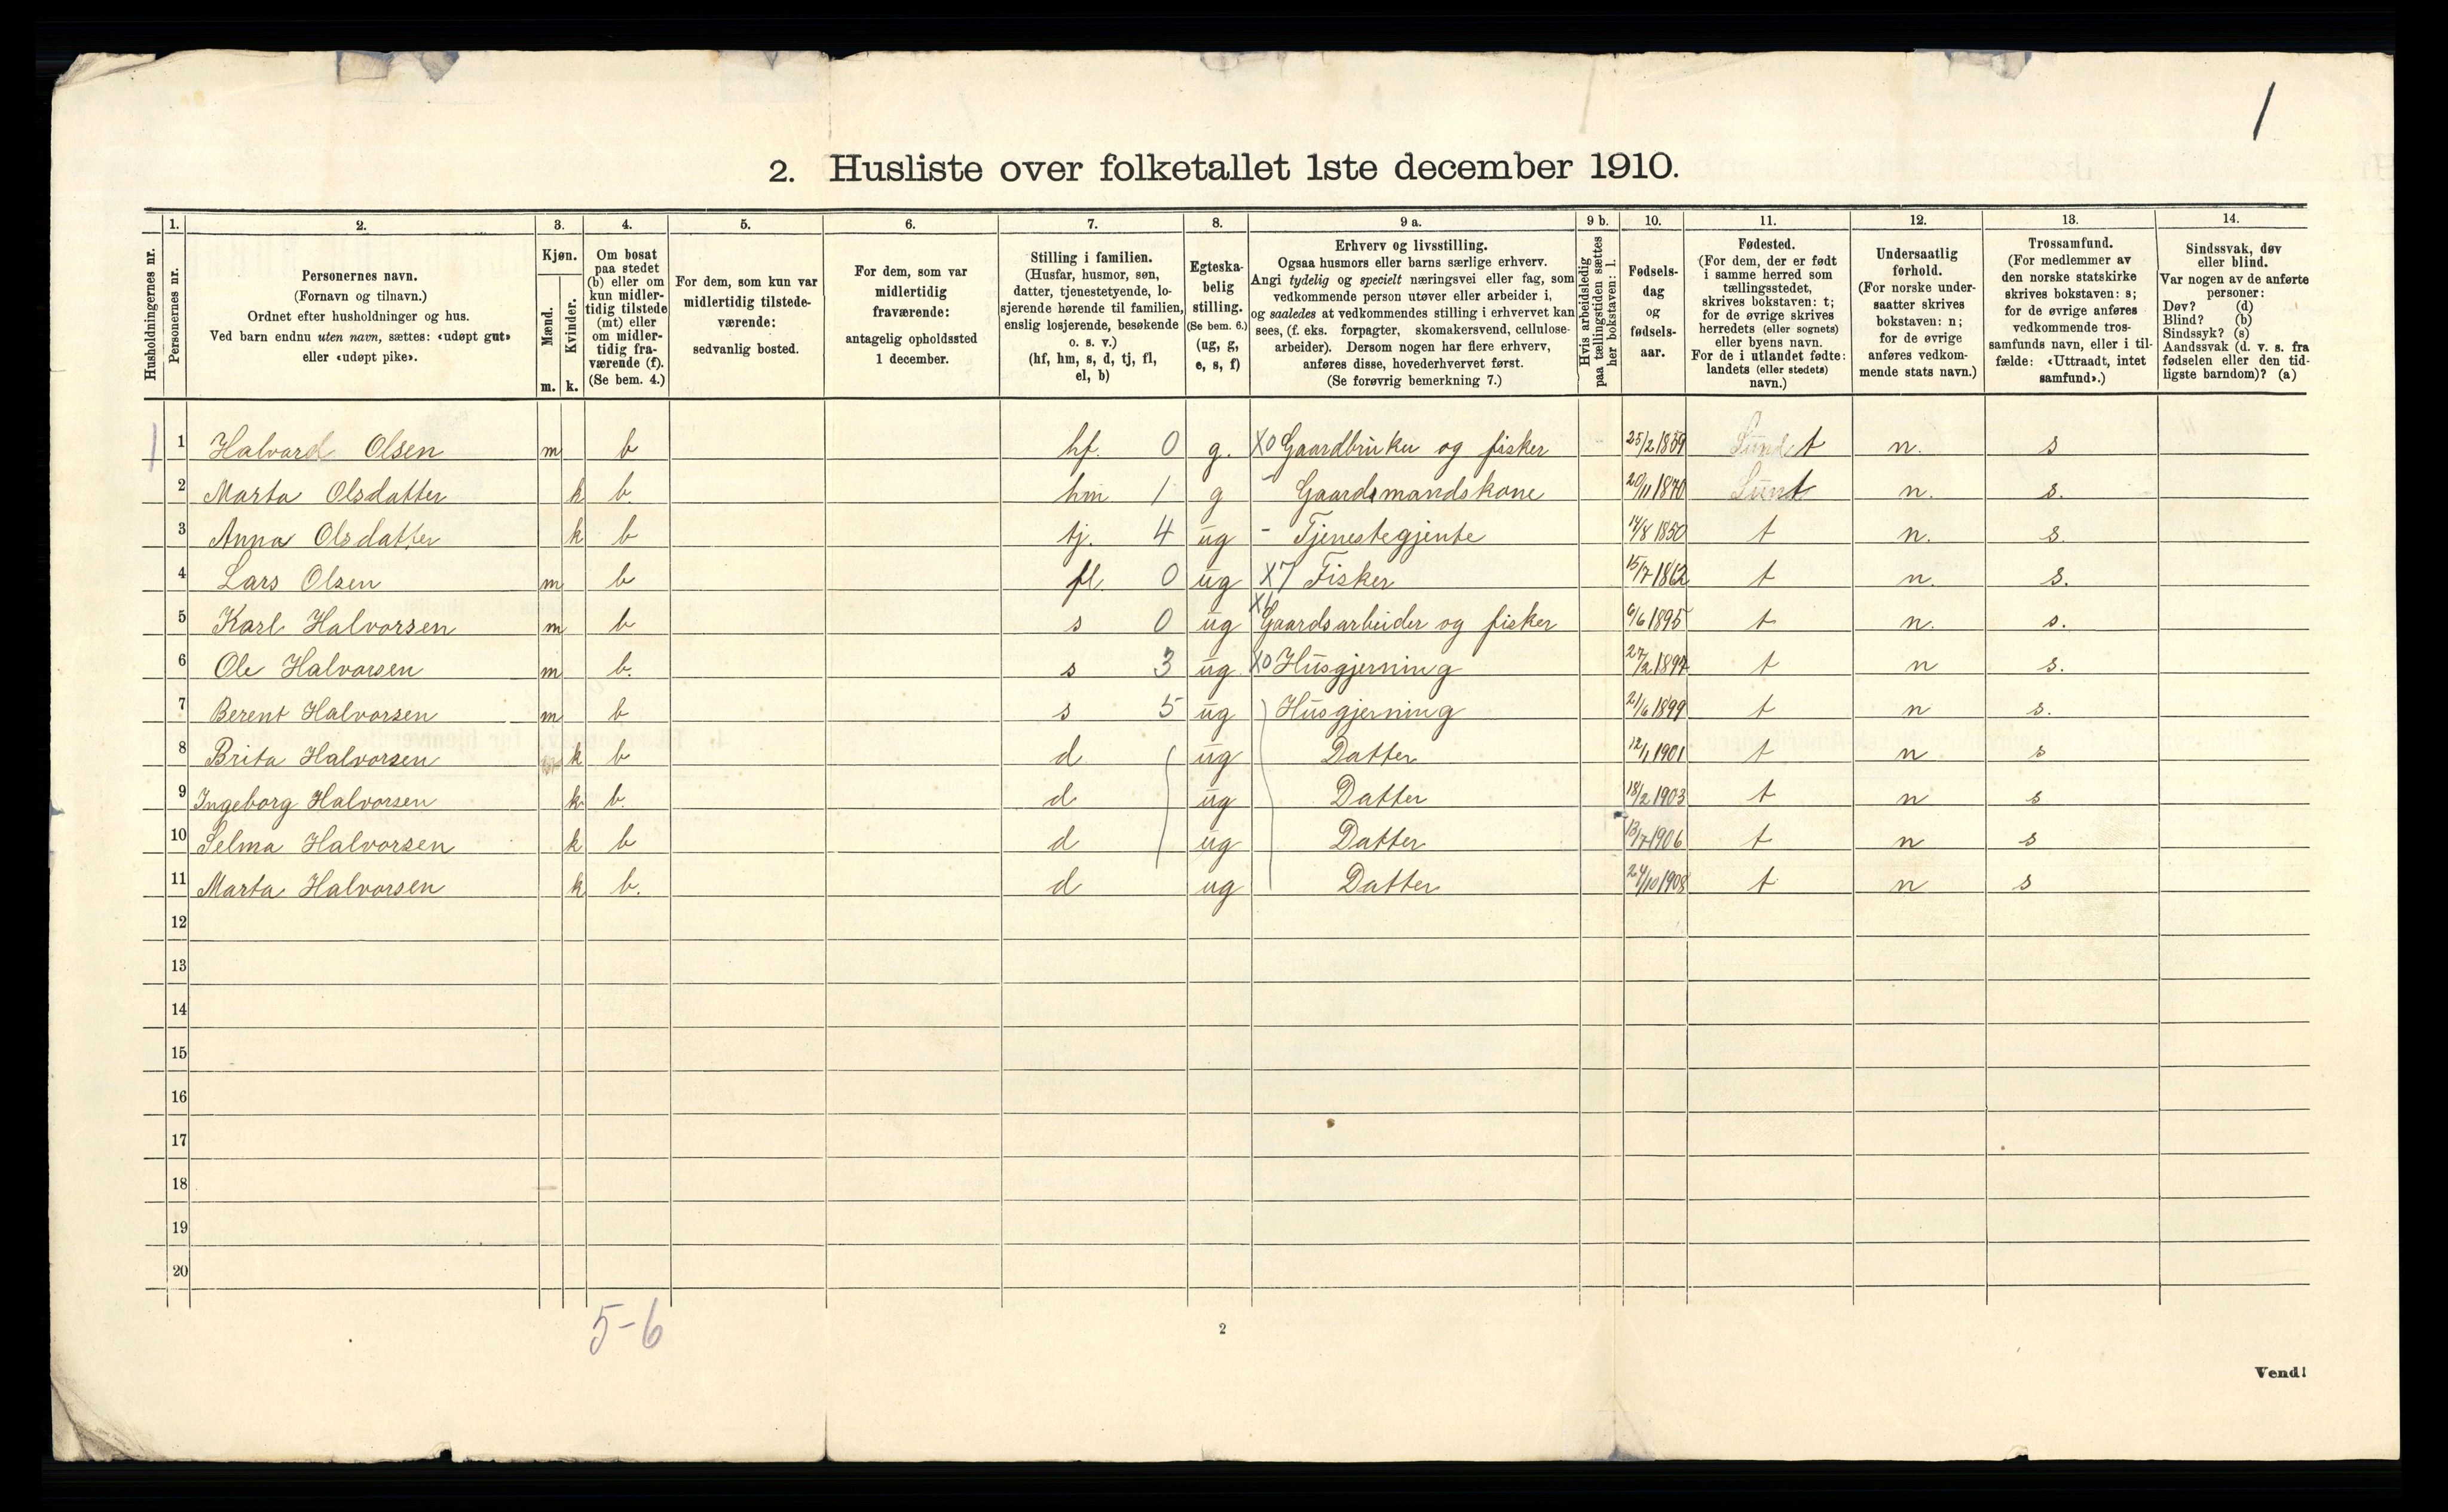 1
2. Husliste over folketallet 1ste december 1910.
Husholdningernes nr.
1. Personernes nr.
2. Personernes navn.
(Fornavn og tilnavn.)
Ordnet efter husholdninger og hus.
Ved barn endnu uten navn, sættes: «udøpt gut»
eller «udøpt pike».
3. Kjøn.
Mænd. m.
Kvinder. k.
4. Om bosat
paa stedet
(b) eller om
kun midler-
tidig tilstede
(mt) eller
om midler-
tidig fra-
værende (f).
(Se bem. 4.)
5. For dem, som kun var
midlertidig tilstede-
værende:
sedvanlig bosted.
6. For dem, som var
midlertidig
fraværende:
antagelig opholdssted
1 december.
7. Stilling i familien.
(Husfar, husmor, søn,
datter, tjenestetyende, lo-
sjerende hørende til familien,
enslig losjerende, besøkende
o. s. v.)
(hf, hm, s, d, tj, fl,
el, b)
8. Egteska-
belig
stilling.
(Se bem. 6.)
(ug, g,
e, s, f)
9 a. Erhverv og livsstilling.
Ogsaa husmors eller barns særlige erhverv.
Angi tydelig og specielt næringsvei eller fag, som
vedkommende person utøver eller arbeider i,
og saaledes at vedkommendes stilling i erhvervet kan
sees, (f. eks. forpagter, skomakersvend, cellulose-
arbeider). Dersom nogen har flere erhverv,
anføres disse, hovederhvervet først.
(Se forøvrig bemerkning 7.)
9 b. Hvis arbeidsledig
paa tællingstiden sættes
her bokstaven: l.
10. Fødsels-
dag
og
fødsels-
aar.
11. Fødested.
(For dem, der er født
i samme herred som
tællingsstedet,
skrives bokstaven: t;
for de øvrige skrives
herredets (eller sognets)
eller byens navn.
For de i utlandet fødte:
landets (eller stedets)
navn.)
12. Undersaatlig
forhold.
(For norske under-
saatter skrives
bokstaven: n;
for de øvrige
anføres vedkom-
mende stats navn.)
13. Trossamfund.
(For medlemmer av
den norske statskirke
skrives bokstaven: s;
for de øvrige anføres
vedkommende tros-
samfunds navn, eller i til-
fælde: «Uttraadt, intet
samfund».)
14. Sindssvak, døv
eller blind.
Var nogen av de anførte
personer:
Døv? (d)
Blind? (b)
Sindssyk? (s)
Aandssvak (d. v. s. fra
fødselen eller den tid-
ligste barndom)? (a)
1 1 Halvard Olsen m b hf. 0 g. X0 Gaardbruker og fisker 25/2 1859 t n. s
2 Marta Olsdatter k b. hm 1 g - Gaardsmandskone 20/11 1870 t n. s.
3 Anna Olsdatter k b tj. 4 ug - Tjenestegjente 14/8 1850 t n. s.
4 Lars Olsen m b fl. 0 ug X7 Fisker 15/7 1862 t n. s.
5 Karl Halvorsen m b s 0 ug Gaardsarbeider og fisker 6/6 1895 t n. s.
6 Ole Halvorsen m b. s 3 ug X0 Husgjerning 27/2 1897 t n s.
7 Berent Halvorsen m b s 5 ug Husgjerning 21/6 1899 t n s.
8 Brita Halvorsen k b d ug Datter 12/1 1901 t n s
9 Ingeborg Halvorsen k b. d ug Datter 18/2 1903 t n s
10 Selma Halvorsen k b d ug Datter 13/7 1906 t n s
11 Marta Halvorsen k b. d ug Datter 24/10 1908 t n s
12
13
14
15
16
17
18
19
20
5-6
2
Vend!